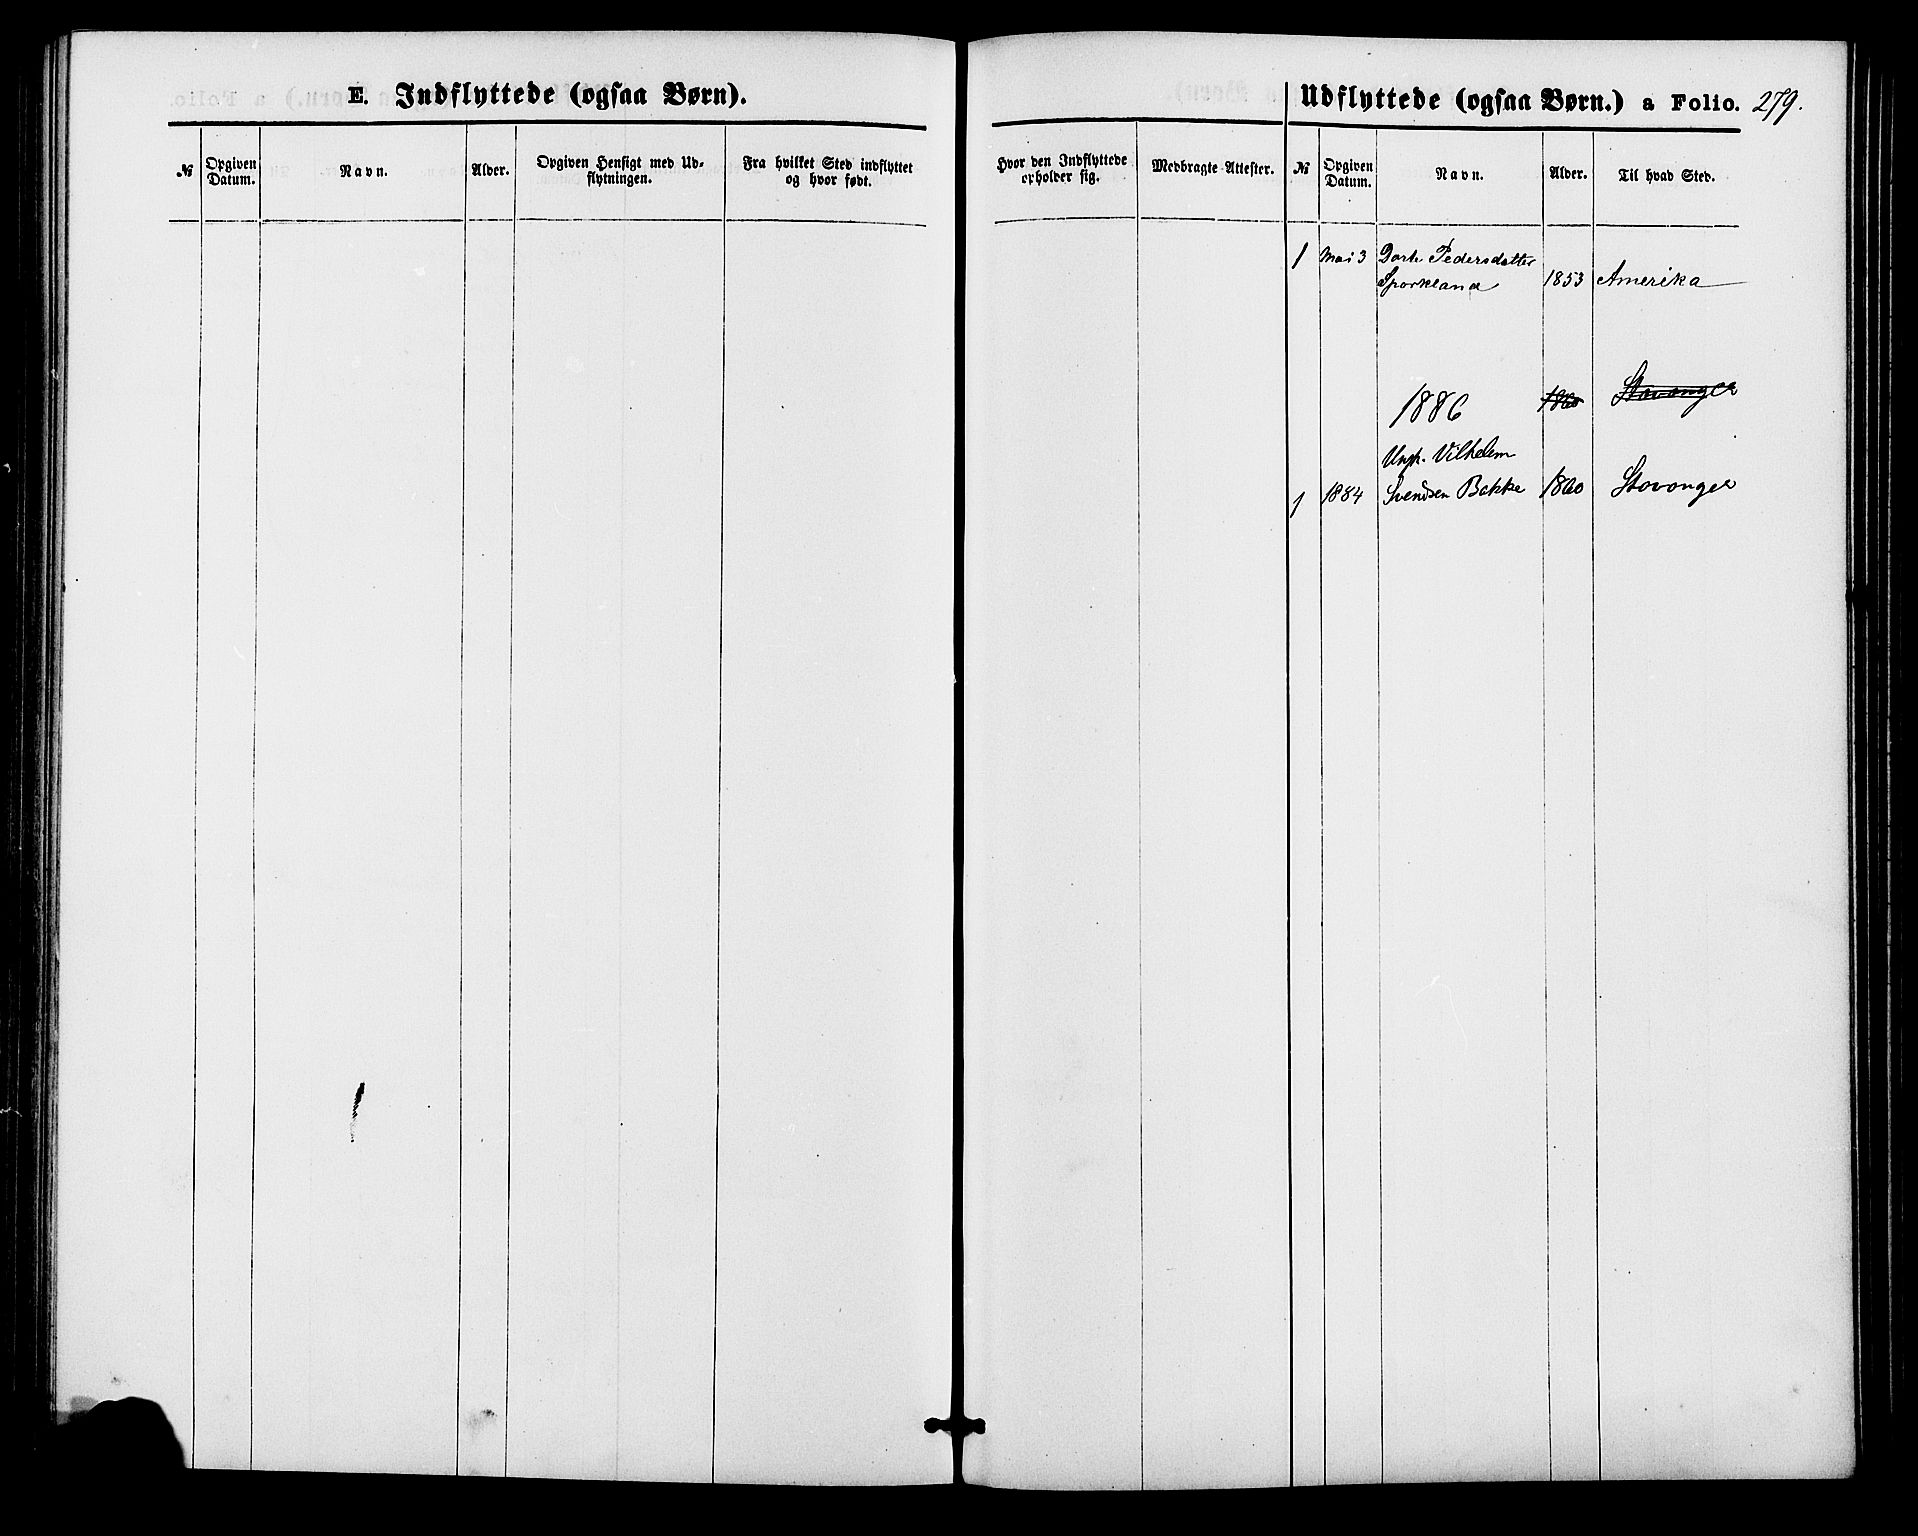 E. Indflyttede (ogsaa Børn).
№
Opgiven Datum.
Navn.
Alder.
Opgiven Hensigt med Udflytningen.
Fra hvilket Sted indflyttet og hvor født.
Hvor den Indflyttede opholder sig.
Medbragte Attester.
Udflyttede (ogsaa Børn.) a Folio. 279.
№
Opgiven Datum.
Navn.
Alder.
Til hvad Sted.
1 Mai 3 Dorte Pedersdatter
Sporkland 1853 Amerika
1886 1860 Stavanger
Ungk. Vilhelm
1 1884 Svendsen Bakke 1860 Stavanger